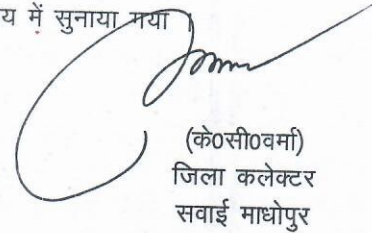 य में सुनाया गया
(के0सी0वर्मा)
जिला कलेक्टर
सवाई माधोपुर